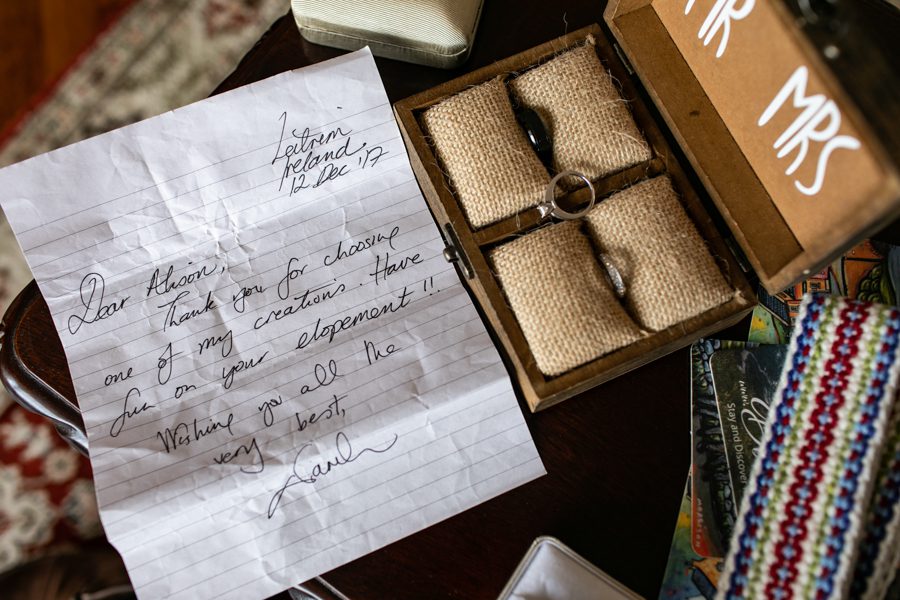 Leitrim
Ireland,
12 Dec '17
Dear Alison,
Thank you for choosing
one of my creations. Have
fun on your elopement!!
Wishing you all the
very best,
Sarah
MR
MRS
Stay and Discover